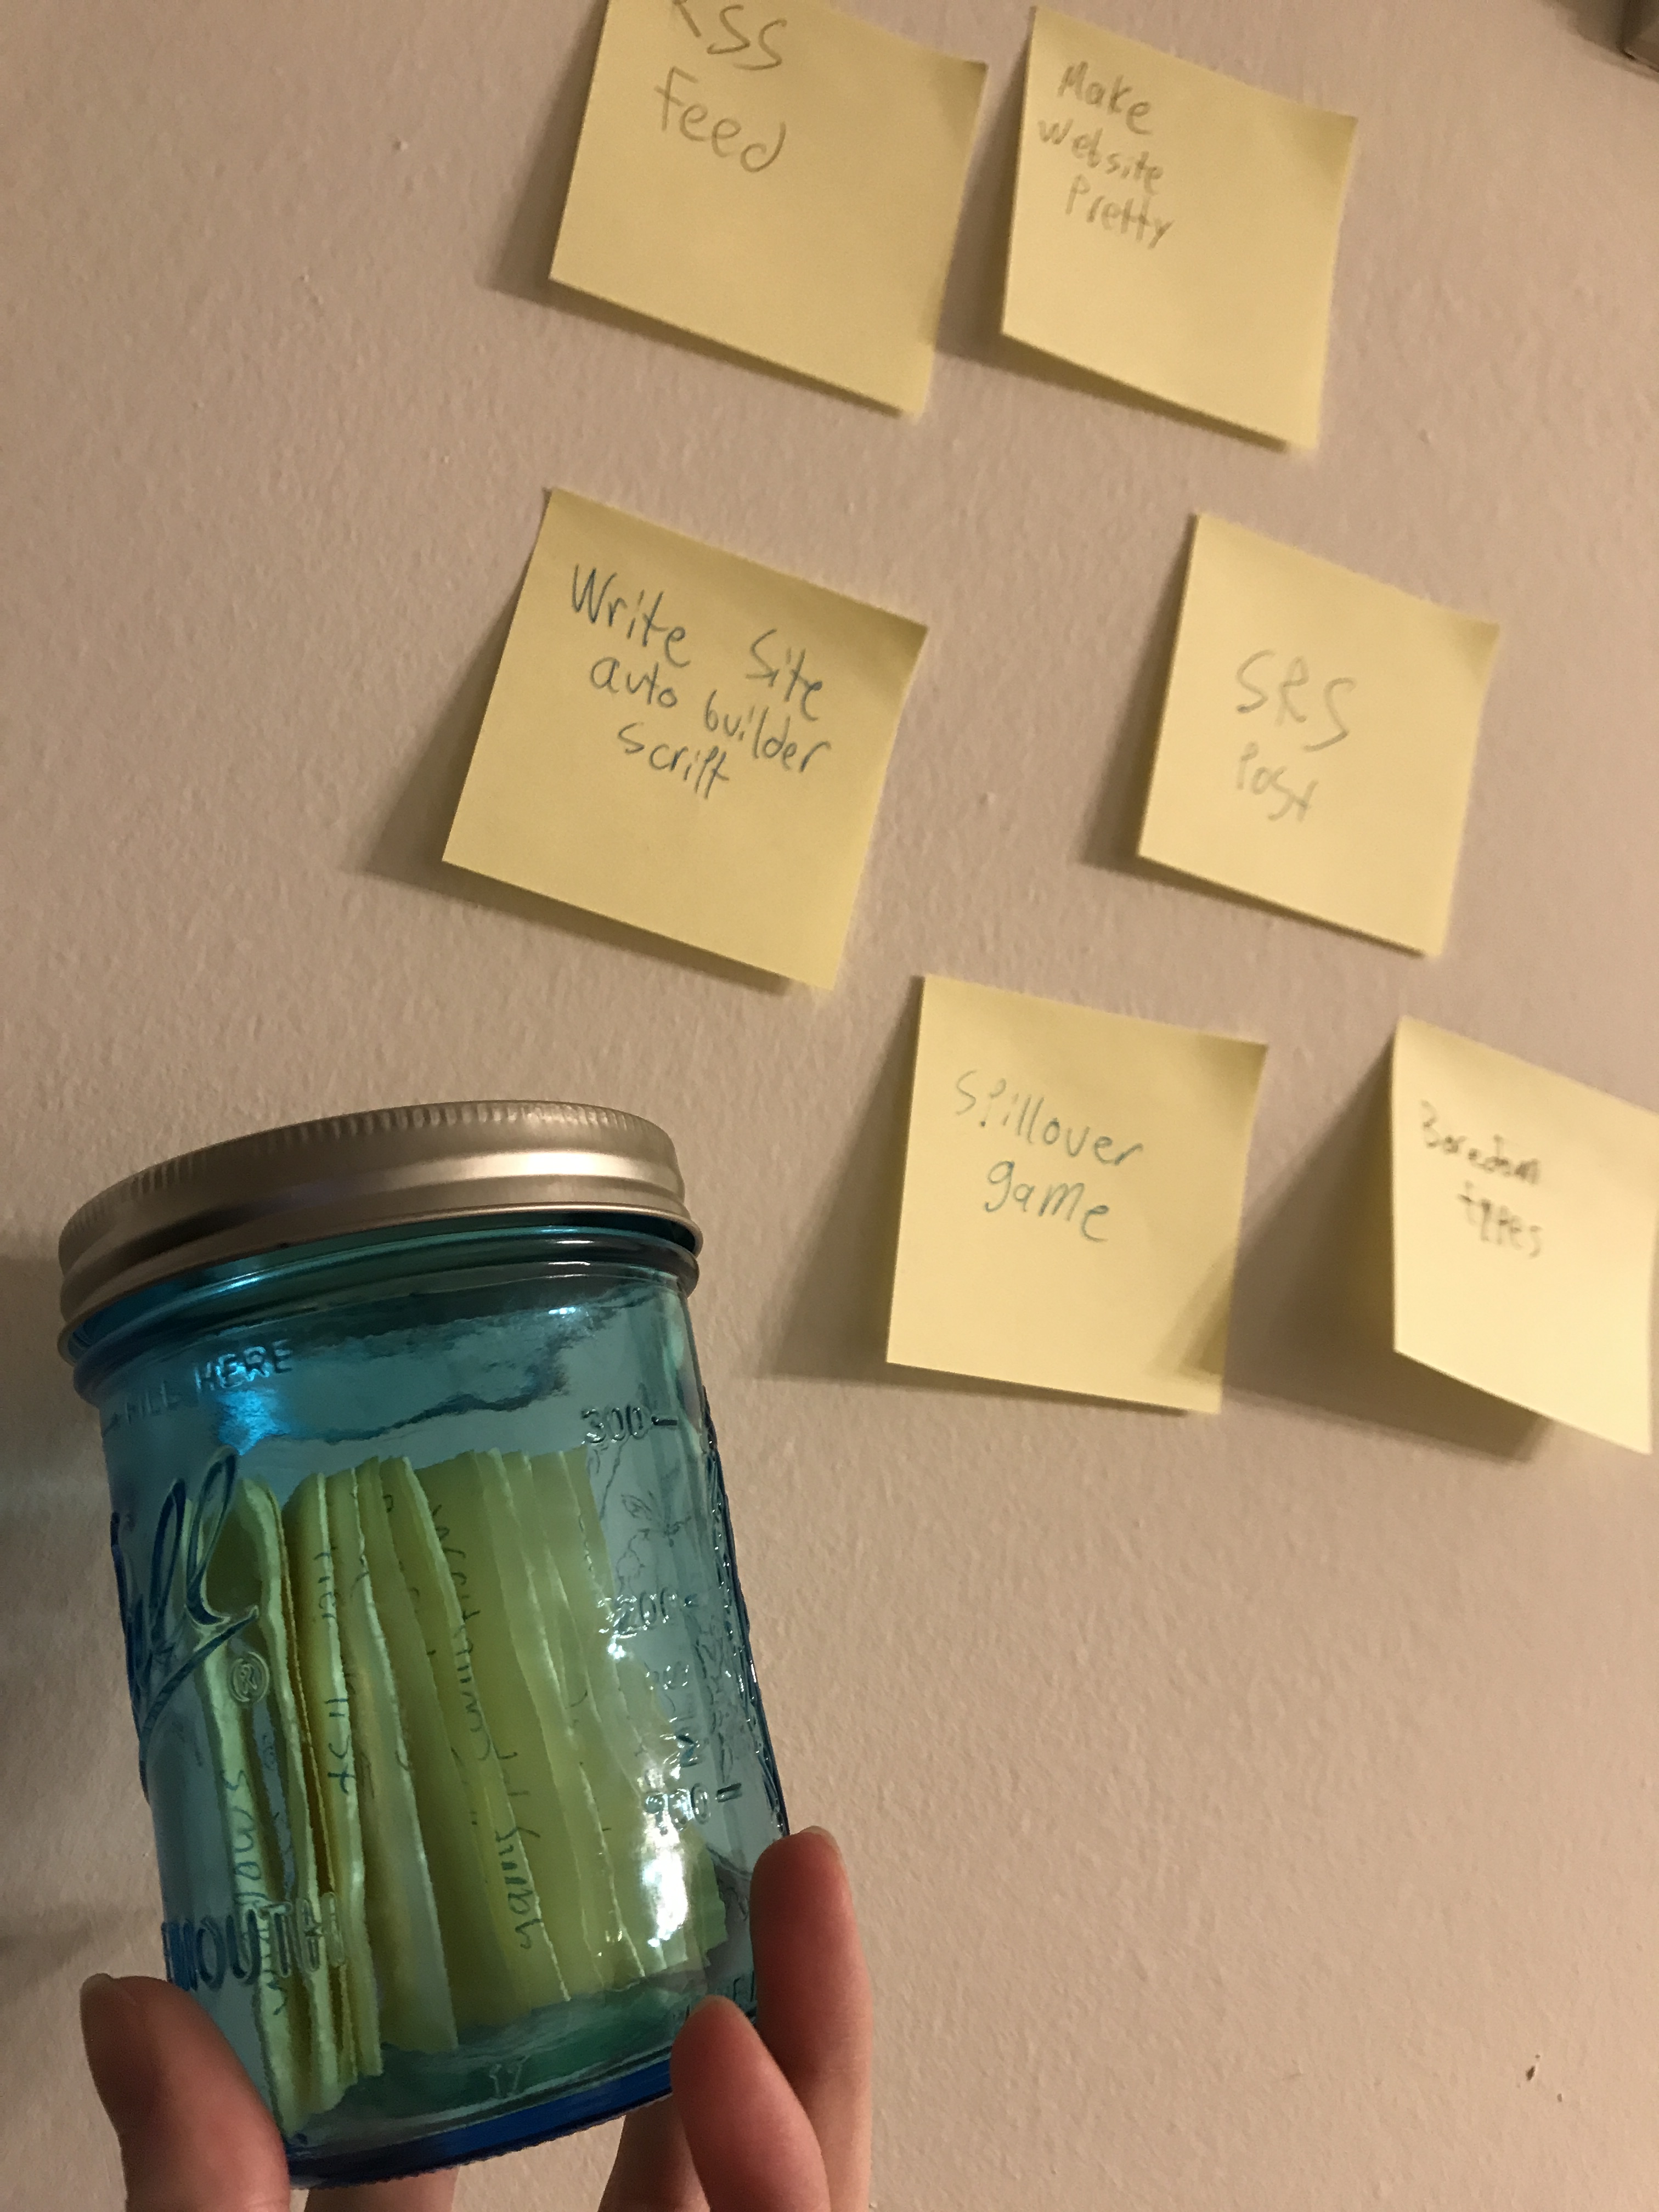 RSS
Feed
Make
Website
Pretty
Write Site
auto builder
script
SRS
Post
Spillover
game
Boredom
types
FILL HERE
300
200
MOUTH